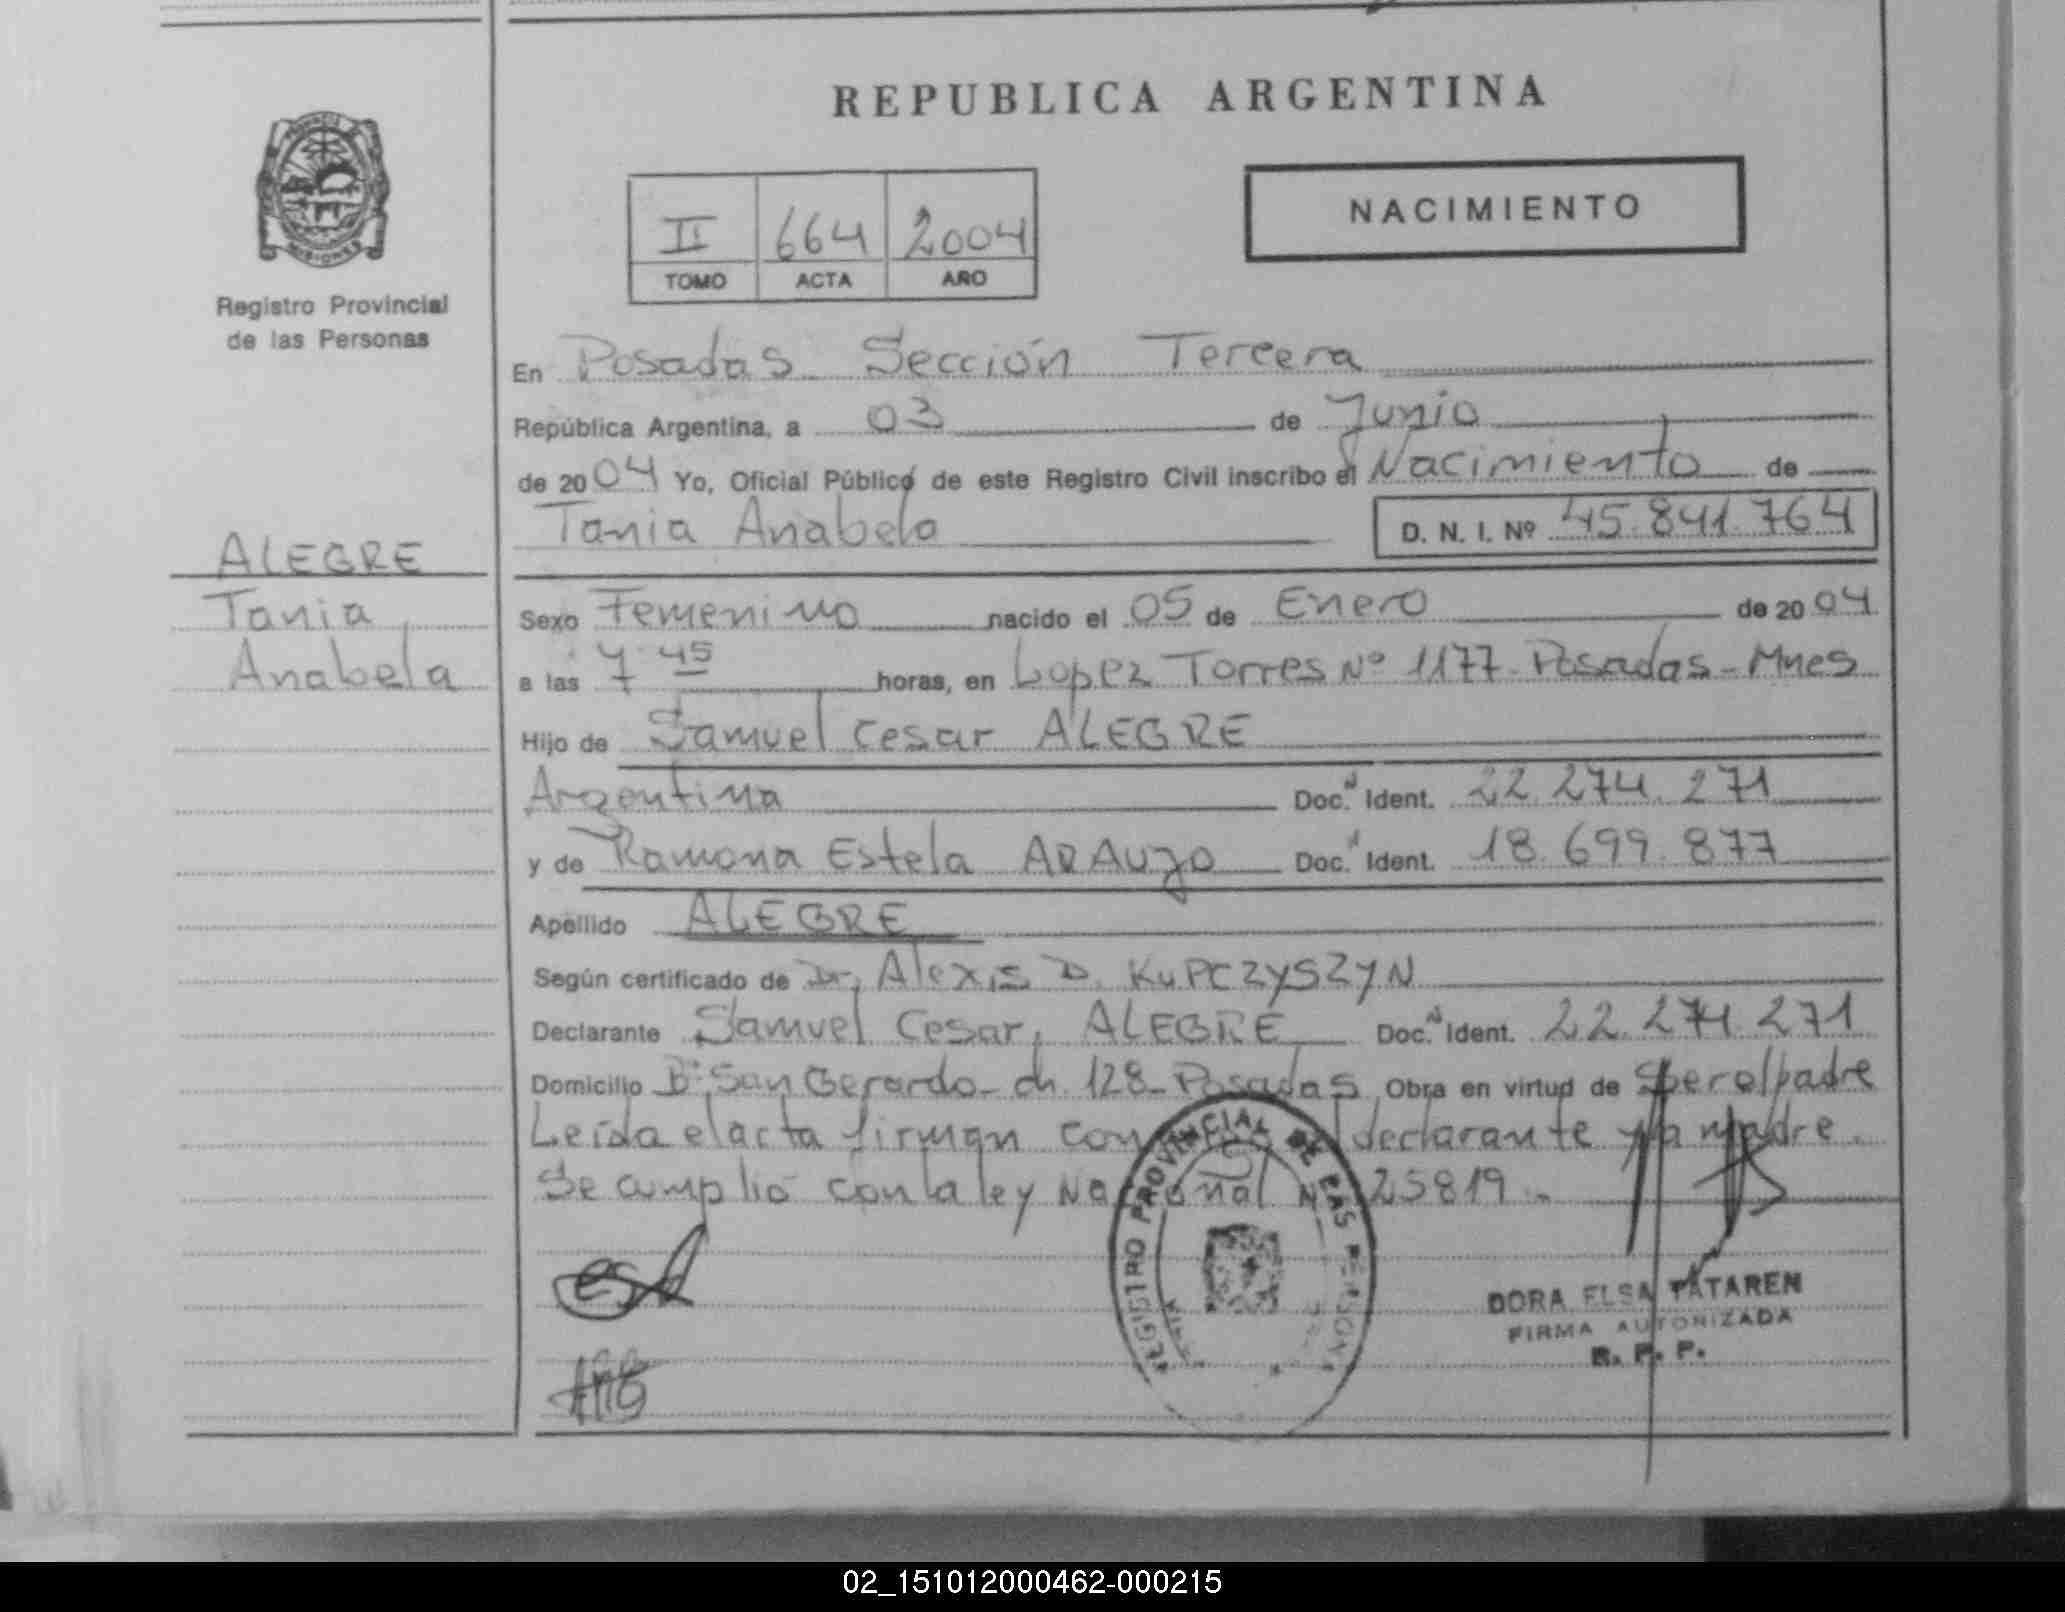 REPUBLICA ARGENTINA
NACIMIENTO
II 664 2004
TOMO ACTA AÑO
PROVINCIA DE
MISIONES
Registro Provincial
de las Personas
En Posadas Sección Tercera
República Argentina, a 03 de Junio
de 2004 Yo, Oficial Público de este Registro Civil inscribo el Nacimiento de
Tania Anabela D. N. I. Nº 45.841.764
ALEGRE
Tania
Anabela
Sexo Femenino nacido el 05 de Enero de 2004
a las 7 45 horas, en Lopez Torres Nº 1177 Posadas - Mnes
Hijo de Samuel Cesar ALEGRE
Argentina Doc. Ident. 22.274.271
y de Ramona Estela ARAUJO Doc. Ident. 18.699.877
Apellido ALEGRE
Según certificado de Dr. Alexis D. KUPCZYSZYN
Declarante Samuel Cesar, ALEGRE Doc. Ident. 22.274.271
Domicilio Bº San Gerardo - ch. 128 - Posadas Obra en virtud de ser el padre
Leída el acta firman el declarante y la madre.
Se cumplió con la ley Nacional Nº 25819.-
REGISTRO PROVINCIAL DE LAS PERSONAS
DORA ELSA TATAREN
FIRMA AUTORIZADA
R. P. P.
02_151012000462-000215